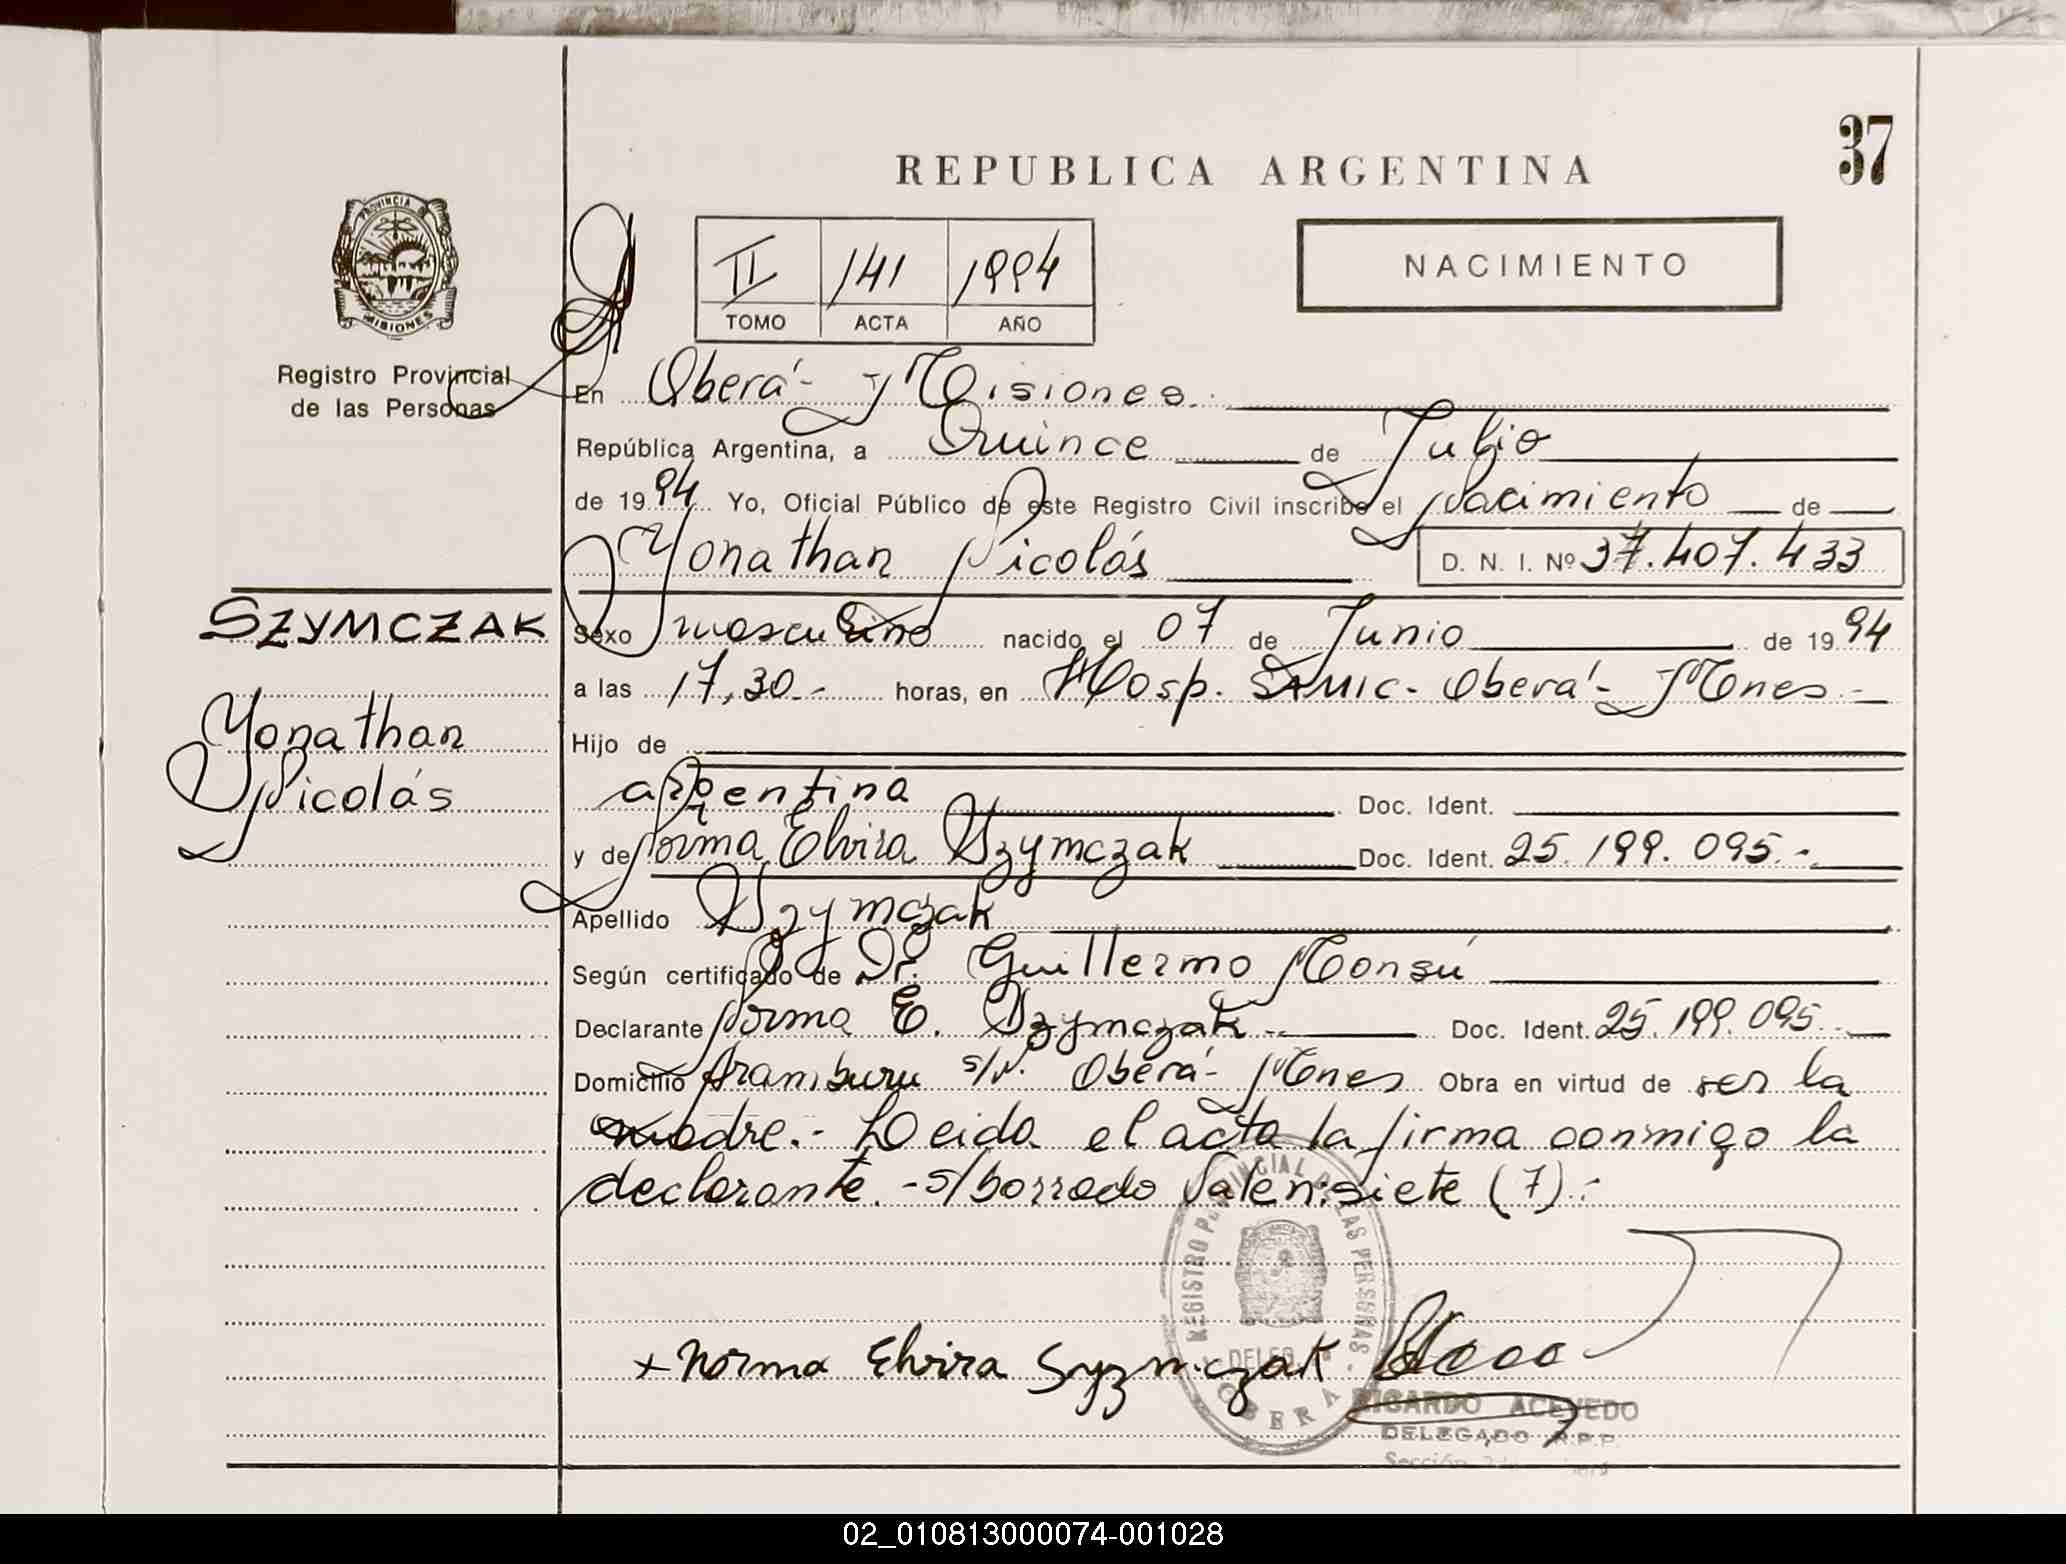 37
REPUBLICA ARGENTINA
PROVINCIA DE
MISIONES
Registro Provincial
de las Personas
II 141 1994
TOMO ACTA AÑO
NACIMIENTO
En Oberá - Misiones.
República Argentina, a Quince de Julio
de 1994 Yo, Oficial Público de este Registro Civil inscribo el Nacimiento de
Yonathan Nicolás D. N. I. Nº 37.407.433
SZYMCZAK
Yonathan
Nicolás
Sexo masculino nacido el 07 de Junio de 1994
a las 17,30.- horas, en Hosp. SAMIC - Oberá - Mnes -
Hijo de
argentina Doc. Ident.
y de Norma Elvira Szymczak Doc. Ident. 25.199.095.-
Apellido Szymczak
Según certificado de Dr. Guillermo Monsú
Declarante Norma E. Szymczak -- Doc. Ident. 25.199.095.-
Domicilio Aramburu s/N. Oberá - Mnes Obra en virtud de ser la
madre.- Leida el acta la firma conmigo la
declarante. - s/borrado Vale: siete (7).-
REGISTRO PROVINCIAL DE LAS PERSONAS
OBERA
+ Norma Elvira Syzmczak
RICARDO ACEVEDO
DELEGADO R.P.P.
Sección
02_010813000074-001028